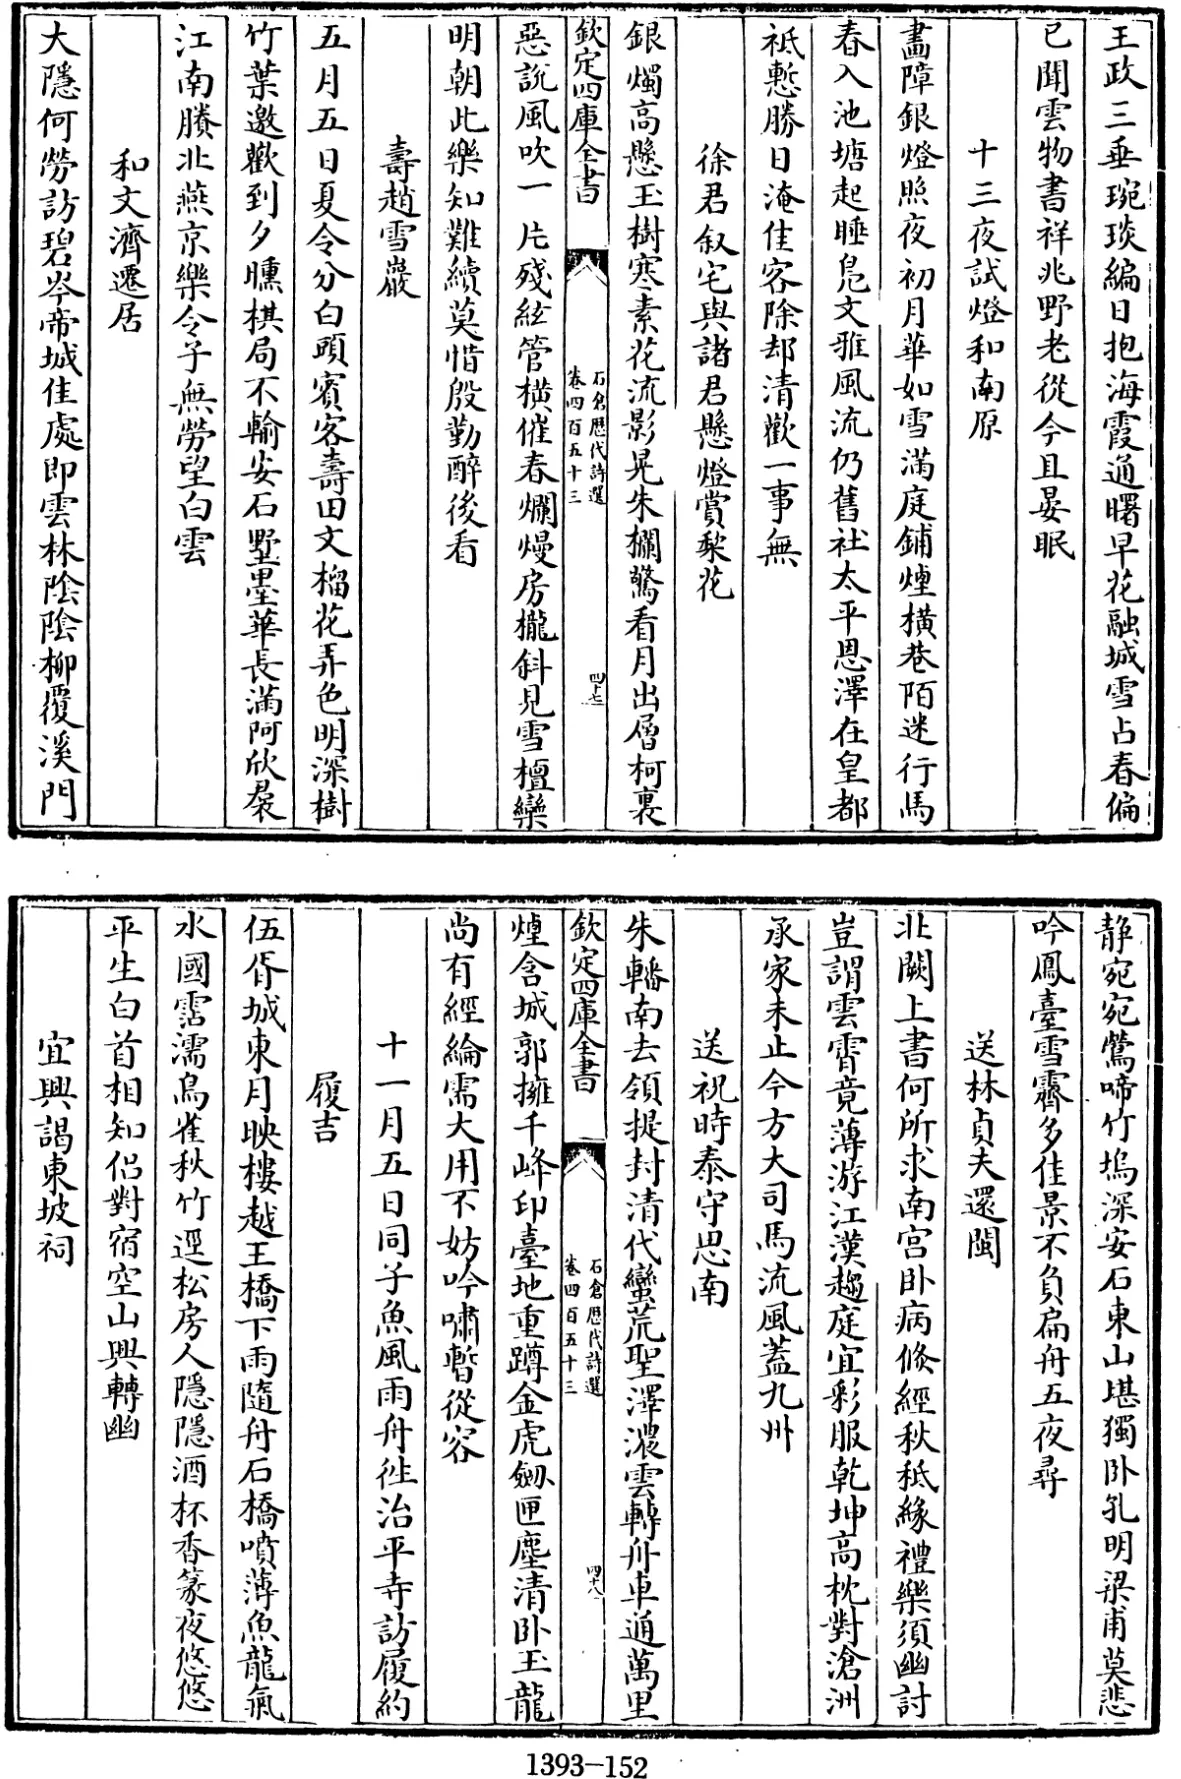 王政三垂琬琰編日抱海霞通曙早花融城雪占春偏
已聞雲物書祥兆野老從今且晏眠
十三夜試燈和南原
畵障銀燈照夜初月華如雪滿庭鋪煙橫巷陌迷行馬
春入池塘起睡鳬文雅風流仍舊社太平恩澤在皇都
祗慙勝日淹佳客除却清歡一事無
徐君叙宅與諸君懸燈賞梨花
銀燭高懸玉樹寒素花流影晃朱欄驚看月出層柯裏
欽定四庫全書
石倉歷代詩選
卷四百五十三
四十七
惡說風吹一片殘絃管橫催春爛熳房櫳斜見雪檀欒
明朝此樂知難續莫惜殷勤醉後看
壽趙雪巖
五月五日夏令分白頭賓客壽田文榴花弄色明深樹
竹葉邀歡到夕曛棋局不輸安石墅墨華長滿阿欣裠
江南勝北燕京樂令子無勞望白雲
和文濟遷居
大隱何勞訪碧岑帝城佳處即雲林陰陰柳覆溪門
静宛宛鶯啼竹塢深安石東山堪獨卧孔明梁甫莫悲
吟鳳臺雪霽多佳景不負扁舟五夜尋
送林貞夫還閩
北闕上書何所求南宫卧病倐經秋秪緣禮樂須幽討
豈謂雲霄竟薄游江漢趨庭宜彩服乾坤高枕對滄洲
承家未止今方大司馬流風蓋九州
送祝時泰守思南
朱轓南去領提封清代蠻荒聖澤濃雲轉舟車通萬里
欽定四庫全書
石倉歷代詩選
卷四百五十三
四十八
煙含城郭擁千峰印臺地重蹲金虎劒匣塵清卧玉龍
尚有經綸需大用不妨吟嘯暫從容
十一月五日同子魚風雨舟徃治平寺訪履約
履吉
伍胥城東月映樓越王橋下雨隨舟石橋噴薄魚龍氣
水國霑濡鳥雀秋竹逕松房人隱隱酒杯香篆夜悠悠
平生白首相知侣對宿空山興轉幽
宜興謁東坡祠
1393-152